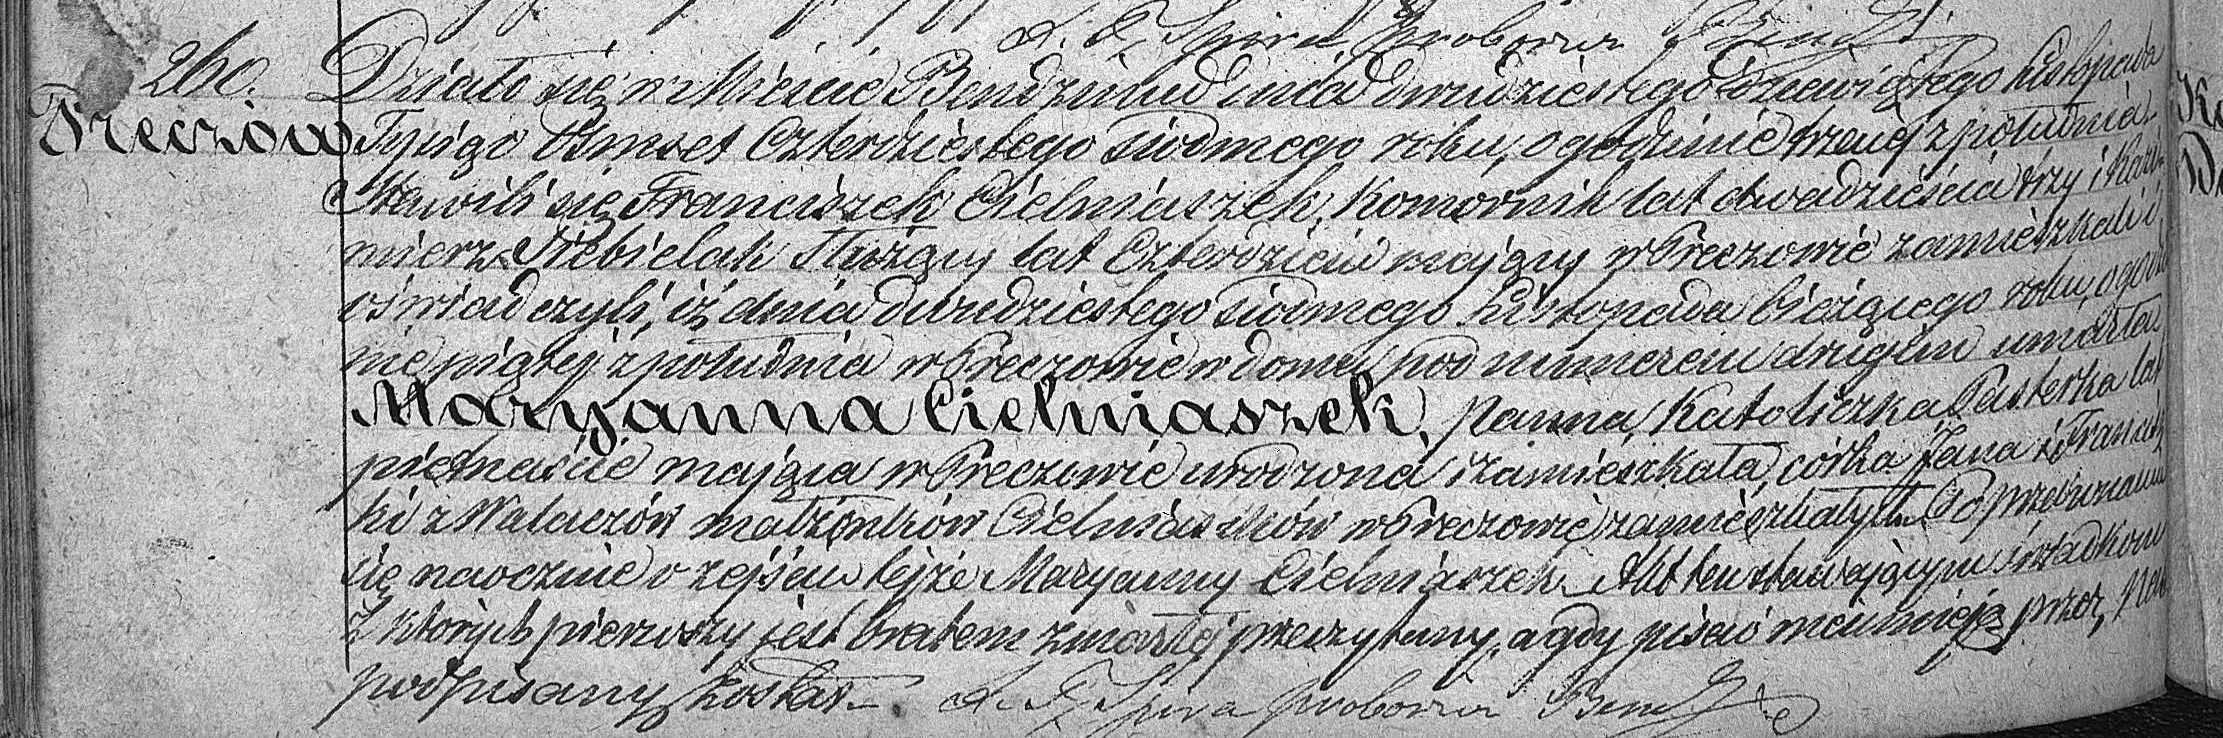 X. F. Spira proboszcz Bendz
260. Działo się w Mieście Bendzinie dnia dwudziestego dziewiątego Listopada
Preczów Tysiąc Ośmset Czterdziestego siódmego roku, o godzinie trzeciej z południa
Stawili się Franciszek Cielniaszek, Komornik lat dwadzieścia trzy i Kazi-
mierz Trebielak Służący lat Czterdzieści mający w Preczowie zamieszkali i
oświadczyli, iż dnia dwudziestego siódmego Listopada bieżącego roku, o godzi
nie piątej z południa w Preczowie w domu pod numerem drugim umarła
Maryanna Cielniaszek, panna, Katoliczka Pasterka lat
piętnaście mająca w Preczowie urodzona i zamieszkała, córka Jana i Franciszki
ki z Walaczów małżonków Cielniaszków w Preczowie zamieszkałych. Po przekonaniu
się naocznie o zejściu tejże Maryanny Cielniaszek. Akt ten stawającym świadkom
z których pierwszy jest bratem zmarłej przeczytany, a gdy pisać nieumieją przez Nas
podpisany został. X. F. Spira proboszcz Bendz